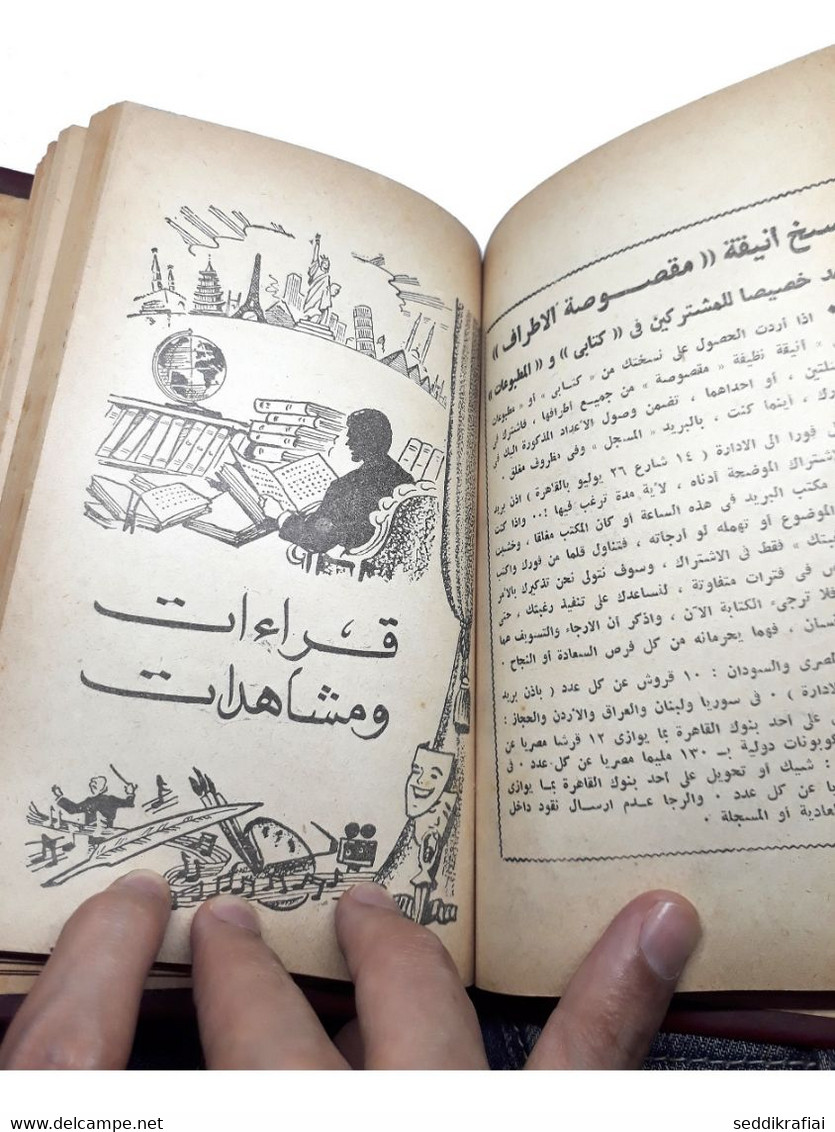 قراءات
ومشاهدات
سخ أنيقة (( مقصوصة الاطراف ))
خصيصا للمشتركين فى (( كتابى )) و (( المطبوعات ))
اذا أردت الحصول على نسختك من « كتابى » أو « مطبوعات
« أنيقة نظيفة « مقصوصة » من جميع أطرافها ، فاشترك فى
، أو احداهما ، تضمن وصول الأعداد المذكورة اليك فى
، أينما كنت ، بالبريد « المسجل » وفى مظروف مغلق .
فورا الى الادارة ( ١٤ شارع ٢٦ يوليو بالقاهرة ) اذن بريد
الاشتراك الموضحة أدناه ، لأية مدة ترغب فيها !.. واذا كنت
مكتب البريد فى هذه الساعة أو كان المكتب مغلقا ، وخشيت
الموضوع أو تهمله لو أرجأته ، فتناول قلما من فورك واكتب
» فقط فى الاشتراك ، وسوف نتولى نحن تذكيرك بالأمر
فى فترات متفاوتة ، لنساعدك على تنفيذ رغبتك ، حتى
فلا ترجىء الكتابة الآن ، واذكر أن الارجاء والتسويف هما
، فهما يحرمانه من كل فرص السعادة أو النجاح .
والسودان : ١٠ قروش عن كل عدد ( باذن بريد
) . فى سوريا ولبنان والعراق والأردن والحجاز :
على أحد بنوك القاهرة بما يوازى ١٢ قرشا مصريا عن
كوبونات دولية بـ ١٣٠ مليما مصريا عن كل عدد . فى
: شيك أو تحويل على أحد بنوك القاهرة بما يوازى
عن كل عدد . والرجا عدم ارسال نقود داخل
أو المسجلة .
delcampe.net
seddikrafiai